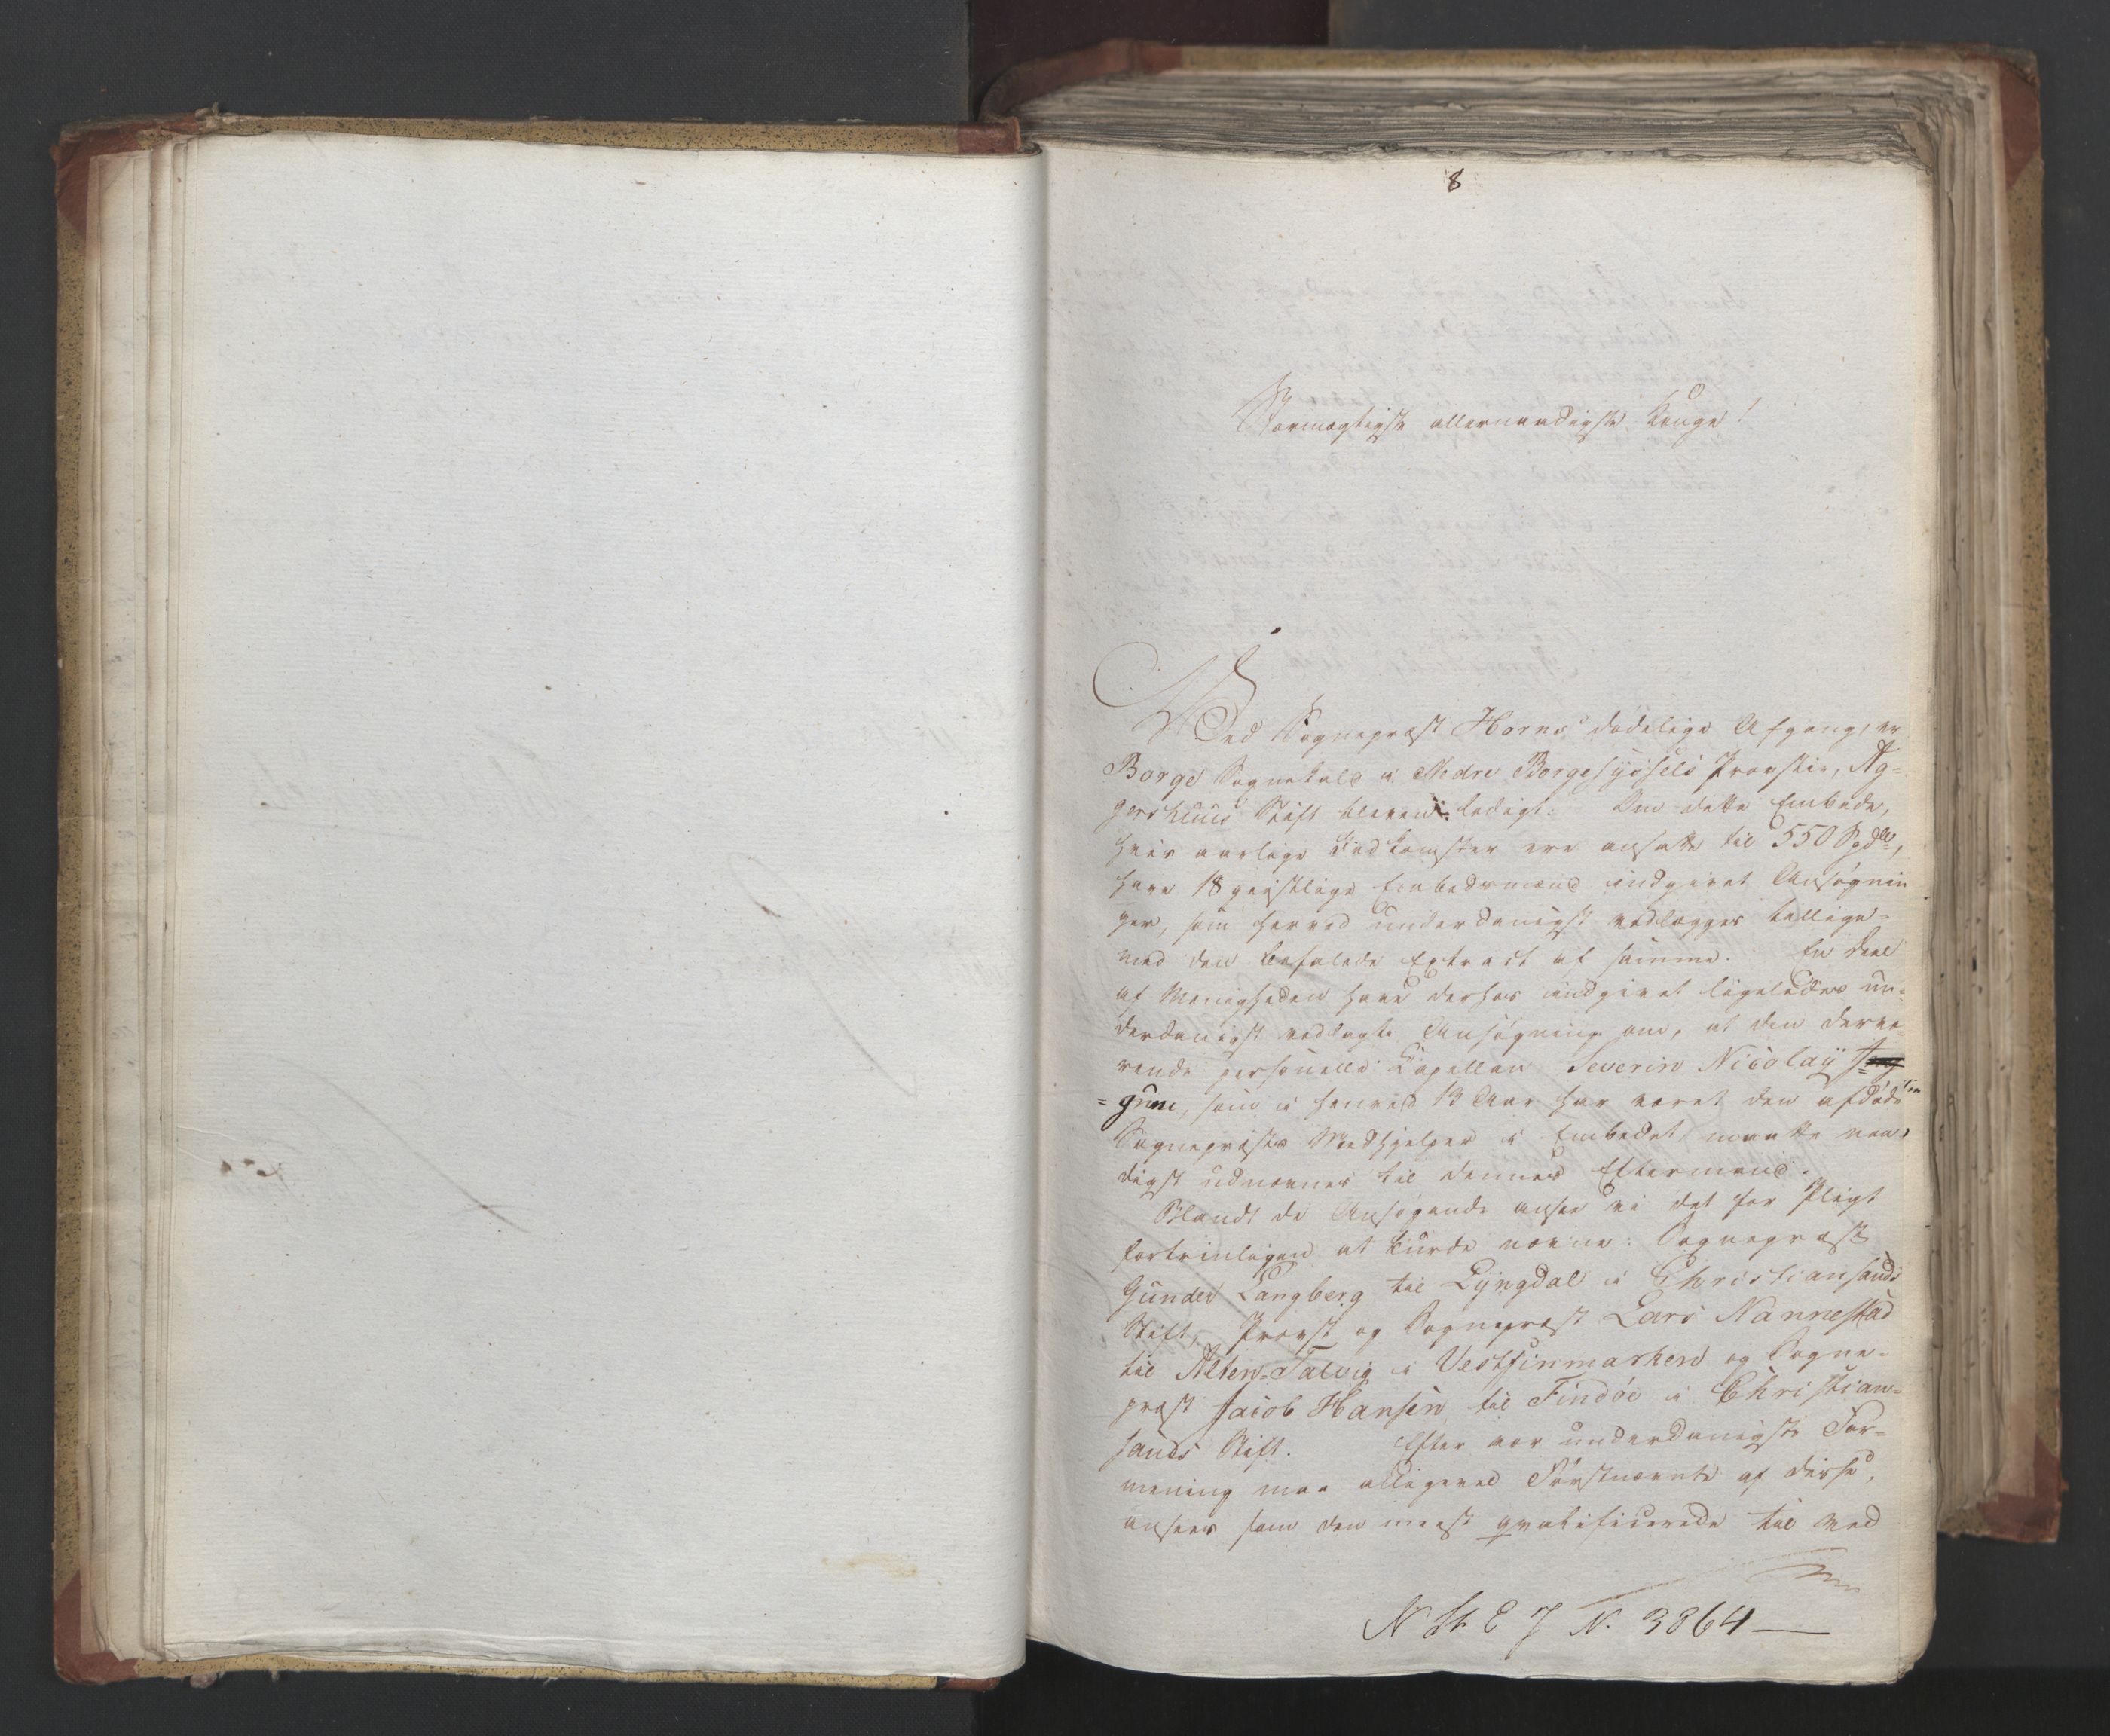 8
Stormægtigste allernaadigste Konge!
Ved Sognepræst Horns dødelige Afgang, er
Borge Sognekald i Nedre Borgesyssels Provstie, Ag=
gershuus Stift bleven ledigt. Om dette Embede,
hvis aarlige Indkomster ere ansatte til 550 Spdlr,
have 18 geistlige Embedsmænd indgivet Ansøgnin
ger, som herved underdanigst vedlægges tillige=
med den befalede Extract af samme. En Deel
af Menigheden have derhos indgivet ligeledes un=
derdanigst vedlagte Ansøgning om, at den dervæ
rende personelle Capellan Severin Nicolaÿ
som i henved 13 Aar har været den afdøde
Sognepræstes Medhjelper i Embedet, maatte naa=
digst udnævnes til dennes Eftermand.
Blandt de Ansøgende ansee vi det for Pligt
fortrinligen at burde nævne: Sognepræst
Gunder Langberg til Lyngdal i Christiansands
Stift, Provst og Sognepræst Lars Nannestad
til Alten-Talvig i Vestfinmarken og Sogne=
præst Jacob Hansen til Findöe i Christian=
sands Stift. Efter vor underdanigste For=
mening maa alligevel Førstnævnte af disse,
ansees som den meest qvalificerede til ved
N St E J N. 3864 —